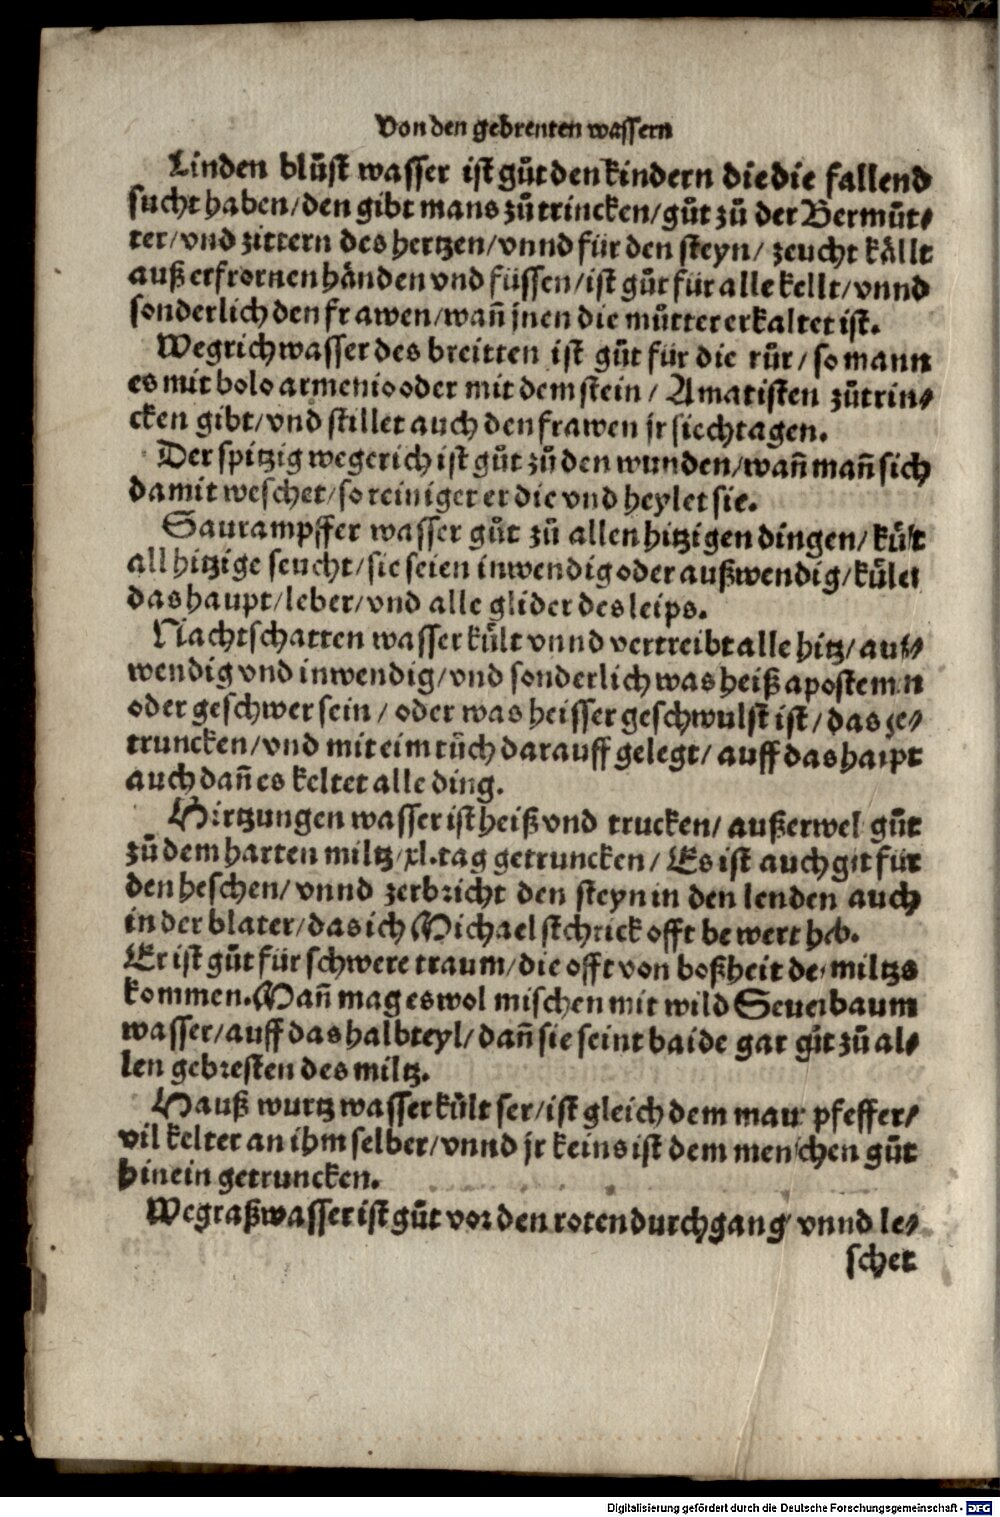 Von den gebrenten wassern
Linden blůst wasser ist gůt den kindern die die fallend
sucht haben/den gibt mans zů trincken/gůt zů der Bermůt⸗
ter/vnd zittern des hertzen/vnnd für den steyn/ zeucht källt
auß erfrornen händen vnd füssen/ist gůt für alle kellt/vnnd
sonderlich den frawen/wañ jnen die můtter erkaltet ist.
Wegrich wasser des breitten ist gůt für die růr/so mann
es mit bolo armenio oder mit dem stein/ Amatisten zů trin⸗
cken gibt/vnd stillet auch den frawen jr siechtagen.
Der spitzig wegerich ist gůt zů den wunden/wañ mañ sich
damit weschet/so reiniget er die vnd heylet sie.
Saurampffer wasser gůt zů allen hitzigen dingen/ kült
all hitzige seucht/sie seien inwendig oder außwendig/kület
das haupt/leber/vnd alle glider des leips.
Nachtschatten wasser kült vnnd vertreibt alle hitz/ auß⸗
wendig vnd inwendig/vnd sonderlich was heiß apostemen
oder geschwer sein/ oder was heisser geschwulst ist/das ge⸗
truncken/vnd mit eim tůch darauff gelegt/ auff das haupt
auch dañ es keltet alle ding.
Hirtzungen wasser ist heiß vnd trucken/ außerwel gůt
zů dem harten miltz/xl.tag getruncken/ Es ist auch gůt für
den heschen/ vnnd zerbricht den steyn in den lenden auch
in der blater/das ich Michael schrick offt bewert heb.
Er ist gůt für schwere traum/die offt von boßheit des miltzs
kommen. Mañ mag es wol mischen mit wild Seuenbaum
wasser/auff das halbteyl/ dañ sie seint baide gar gůt zů al⸗
len gebresten des miltz.
Hauß wurtz wasser kült ser/ist gleich dem maur pfeffer/
vil kelter an ihm selber/vnnd jr keins ist dem menschen gůt
hinein getruncken.
Wegraßwasser ist gůt vor den roten durchgang vnnd le⸗
schet
Digitalisierung gefördert durch die Deutsche Forschungsgemeinschaft - DFG